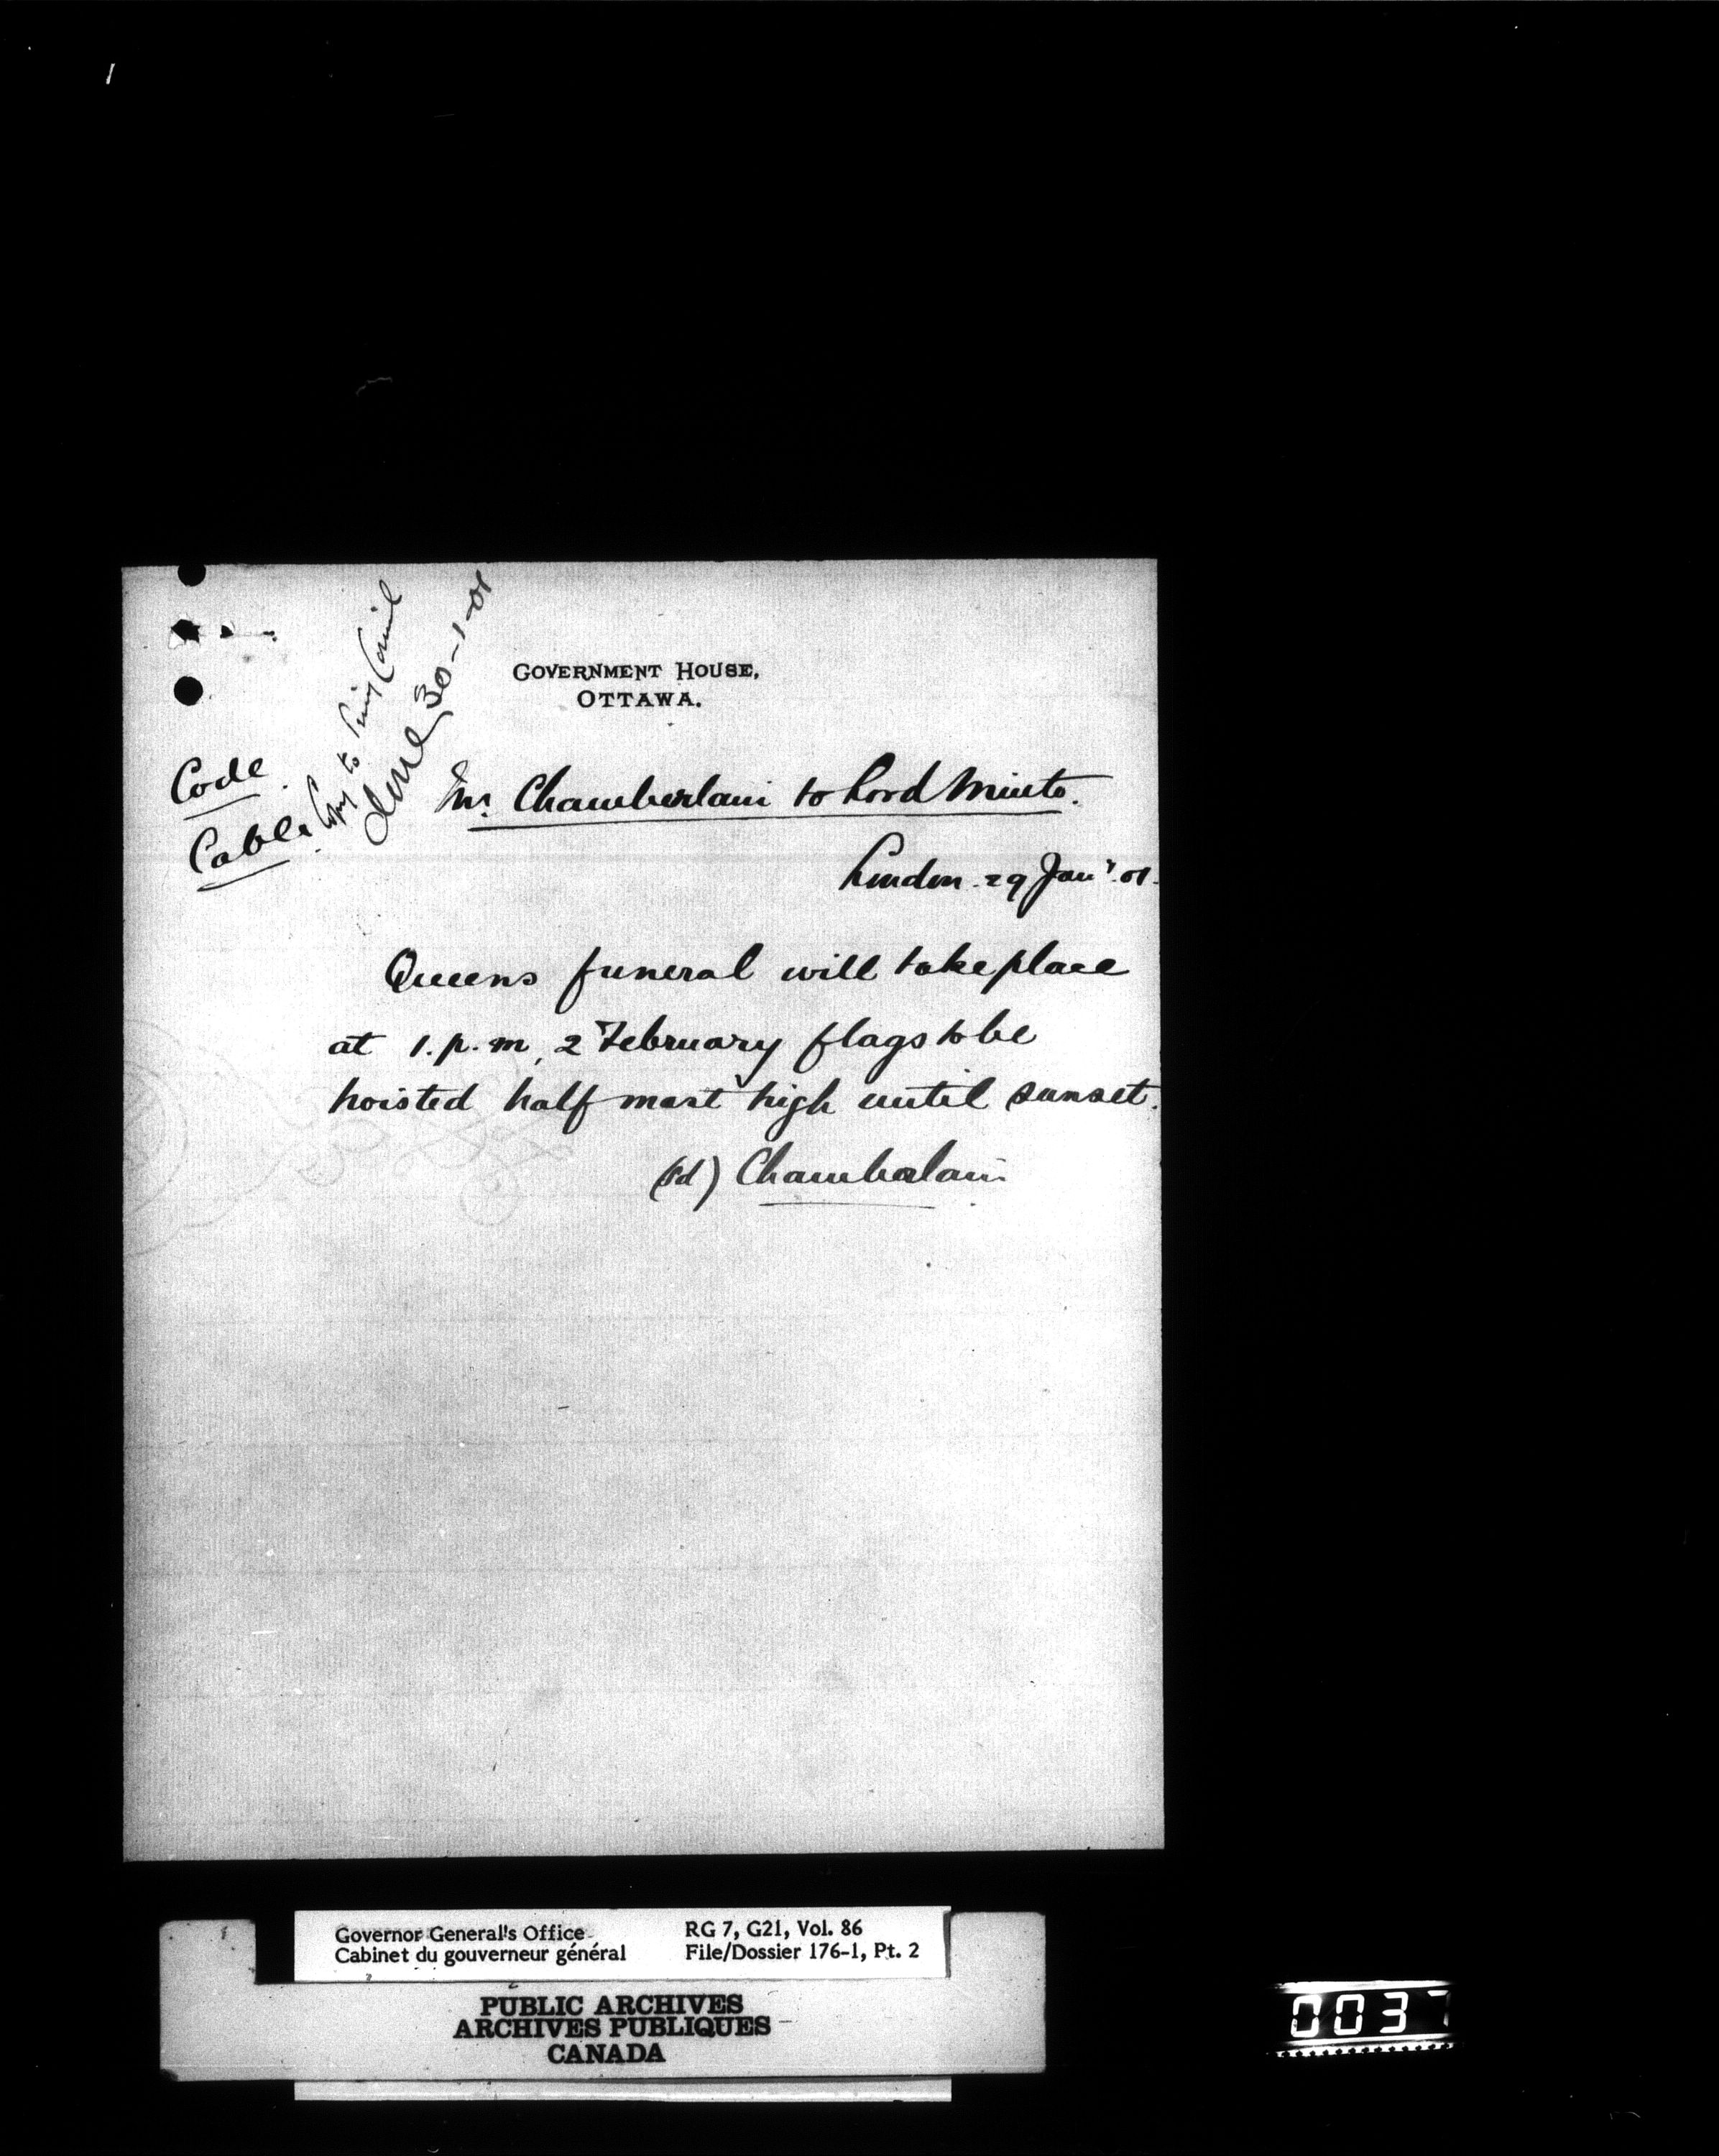 GOVERNMENT HOUSE,
OTTAWA.
Code.
Cable.
Copy to Privy Council
done 30-1-01
Mr. Chamberlain to Lord Minto.
London. 29 Jany. 01.
Queens funeral will take place
at 1. p. m, 2 February flags to be
hoisted half mast high until sunset.
(sd) Chamberlain
Governor General's Office
Cabinet du gouverneur général
RG 7, G21, Vol. 86
File/Dossier 176-1, Pt. 2
PUBLIC ARCHIVES
ARCHIVES PUBLIQUES
CANADA
0037